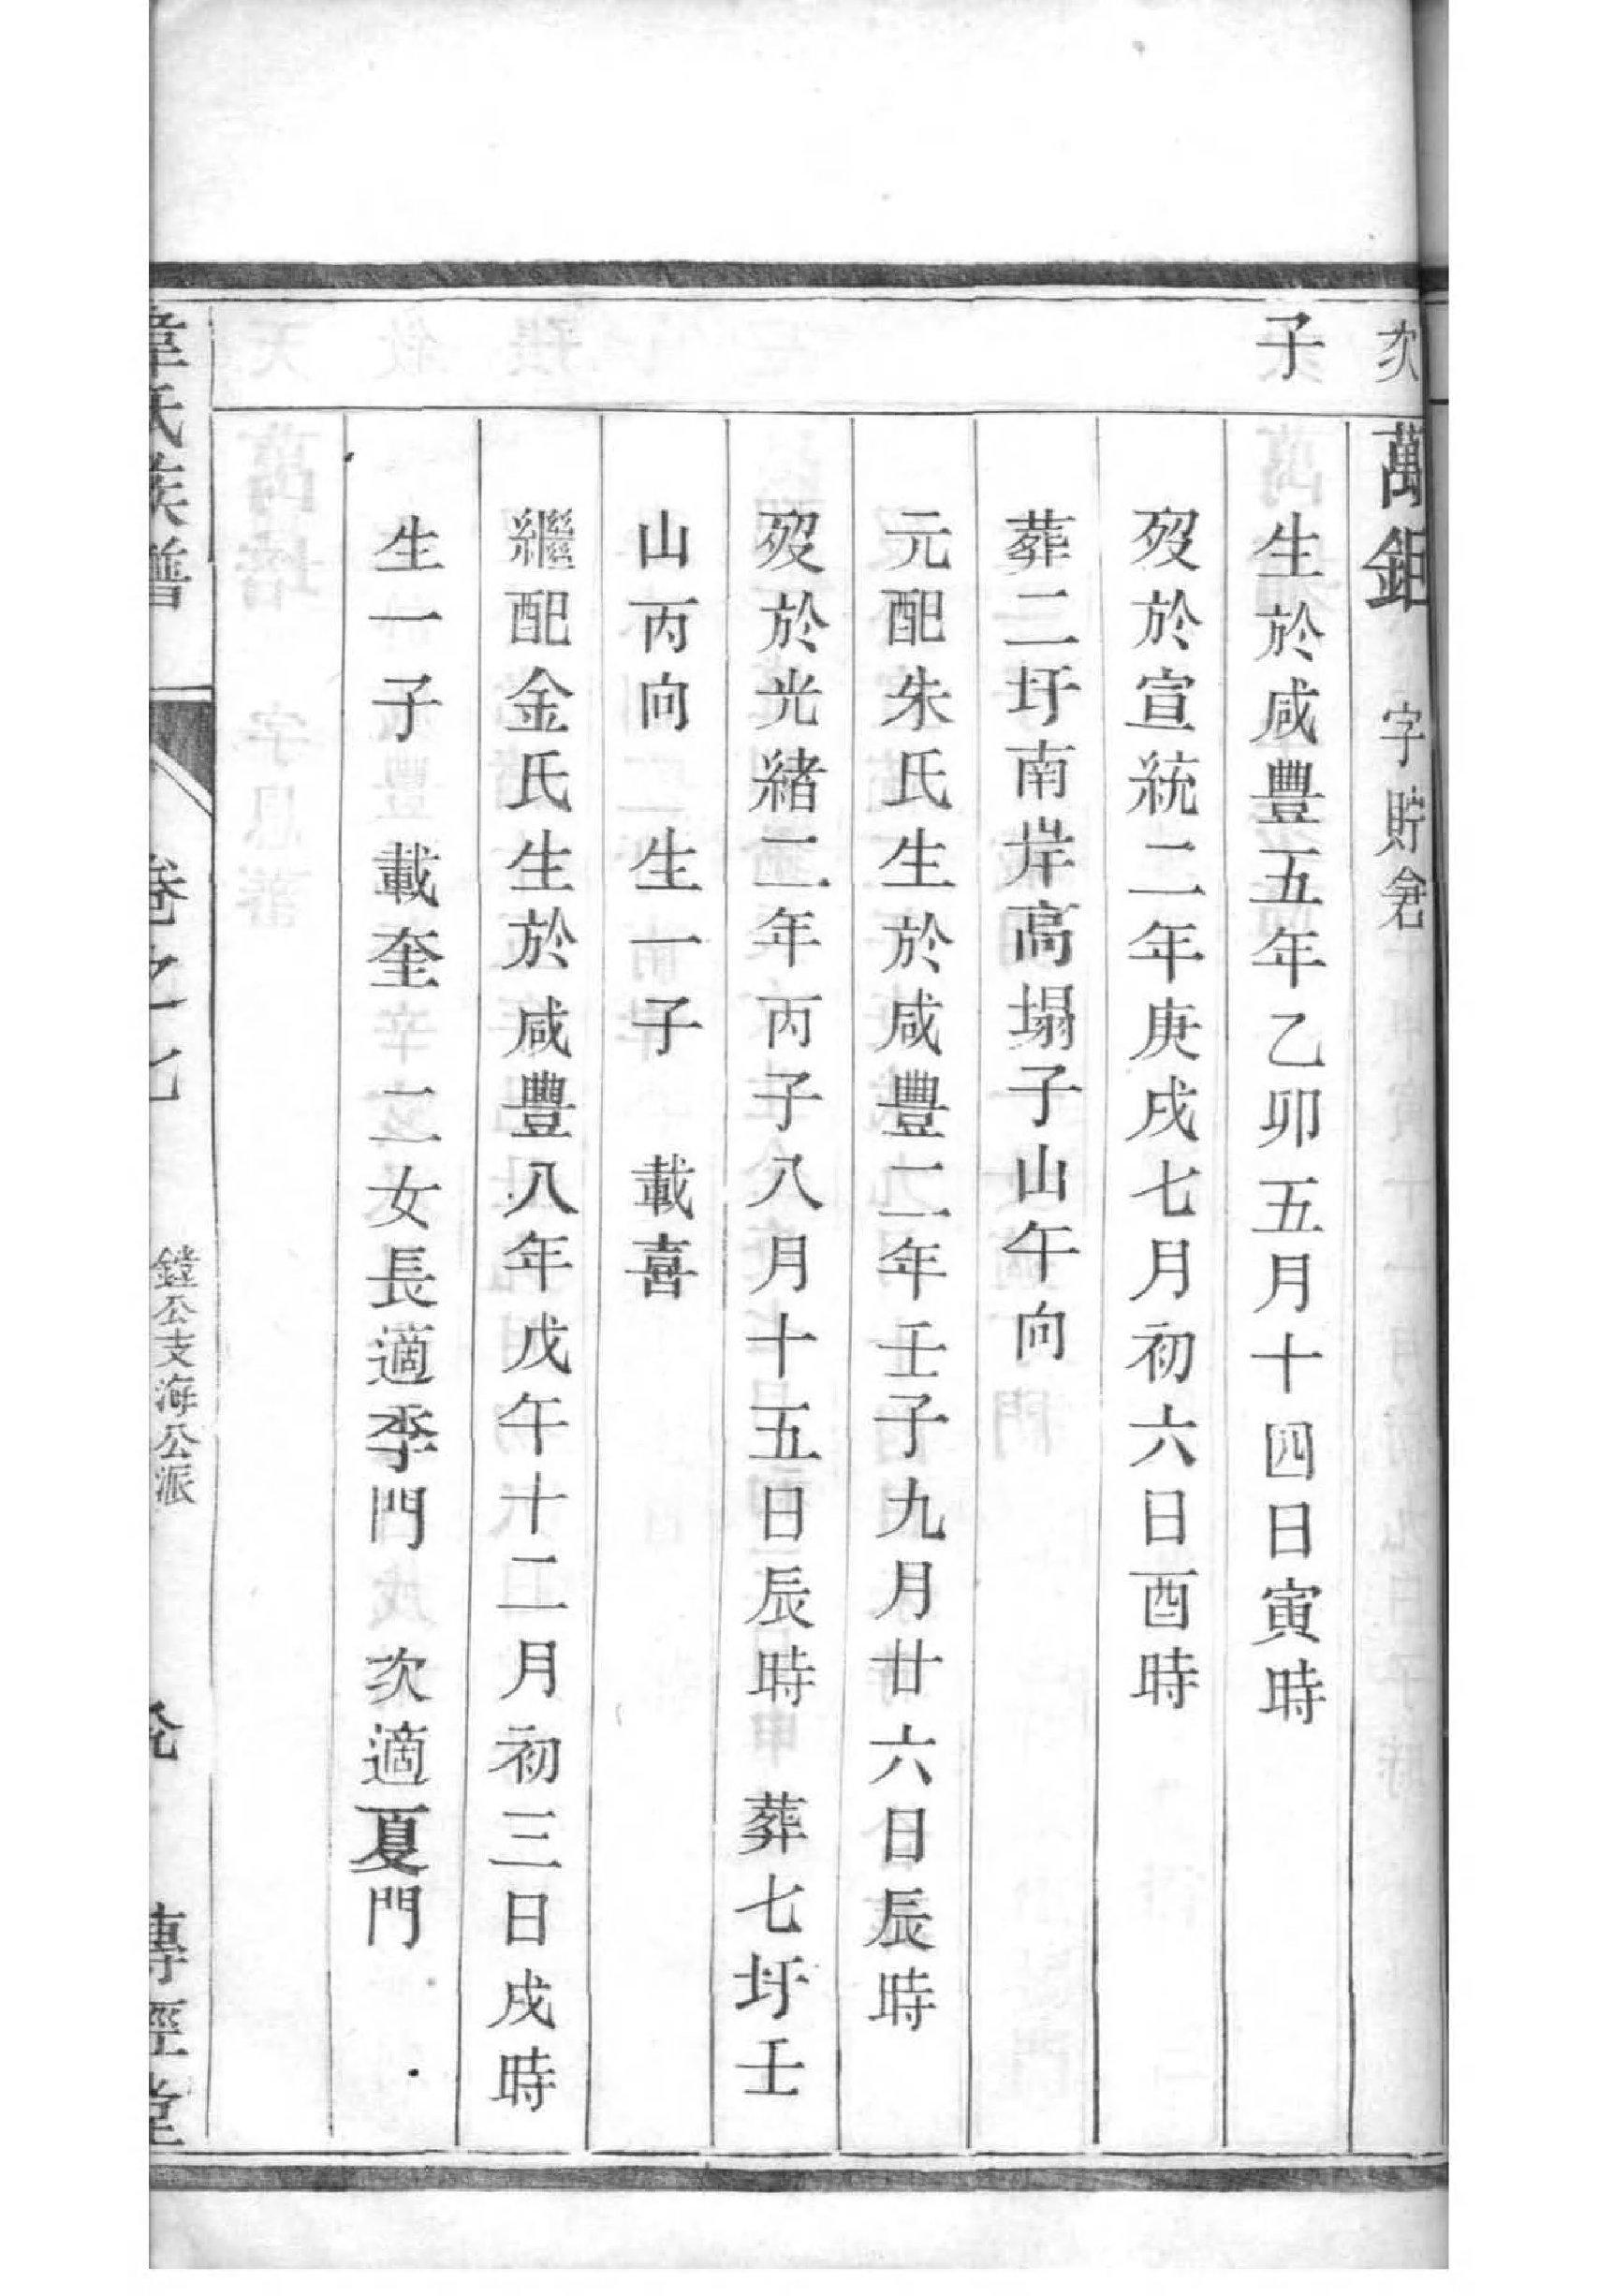 次 萬鉅 字貯倉
子 生於咸豐五年乙卯五月十四日寅時
歿於宣統二年庚戌七月初六日酉時
葬二圩南岸高塌子山午向
元配朱氏生於咸豐二年壬子九月廿六日辰時
歿於光緒二年丙子八月十五日辰時 葬七圩壬
山丙向 生一子 載喜
繼配金氏生於咸豐八年戊午十二月初三日戌時
生一子 載奎 二女長適李門 次適夏門
韋氏族譜 卷之七 鏜公支海公派 傳經堂